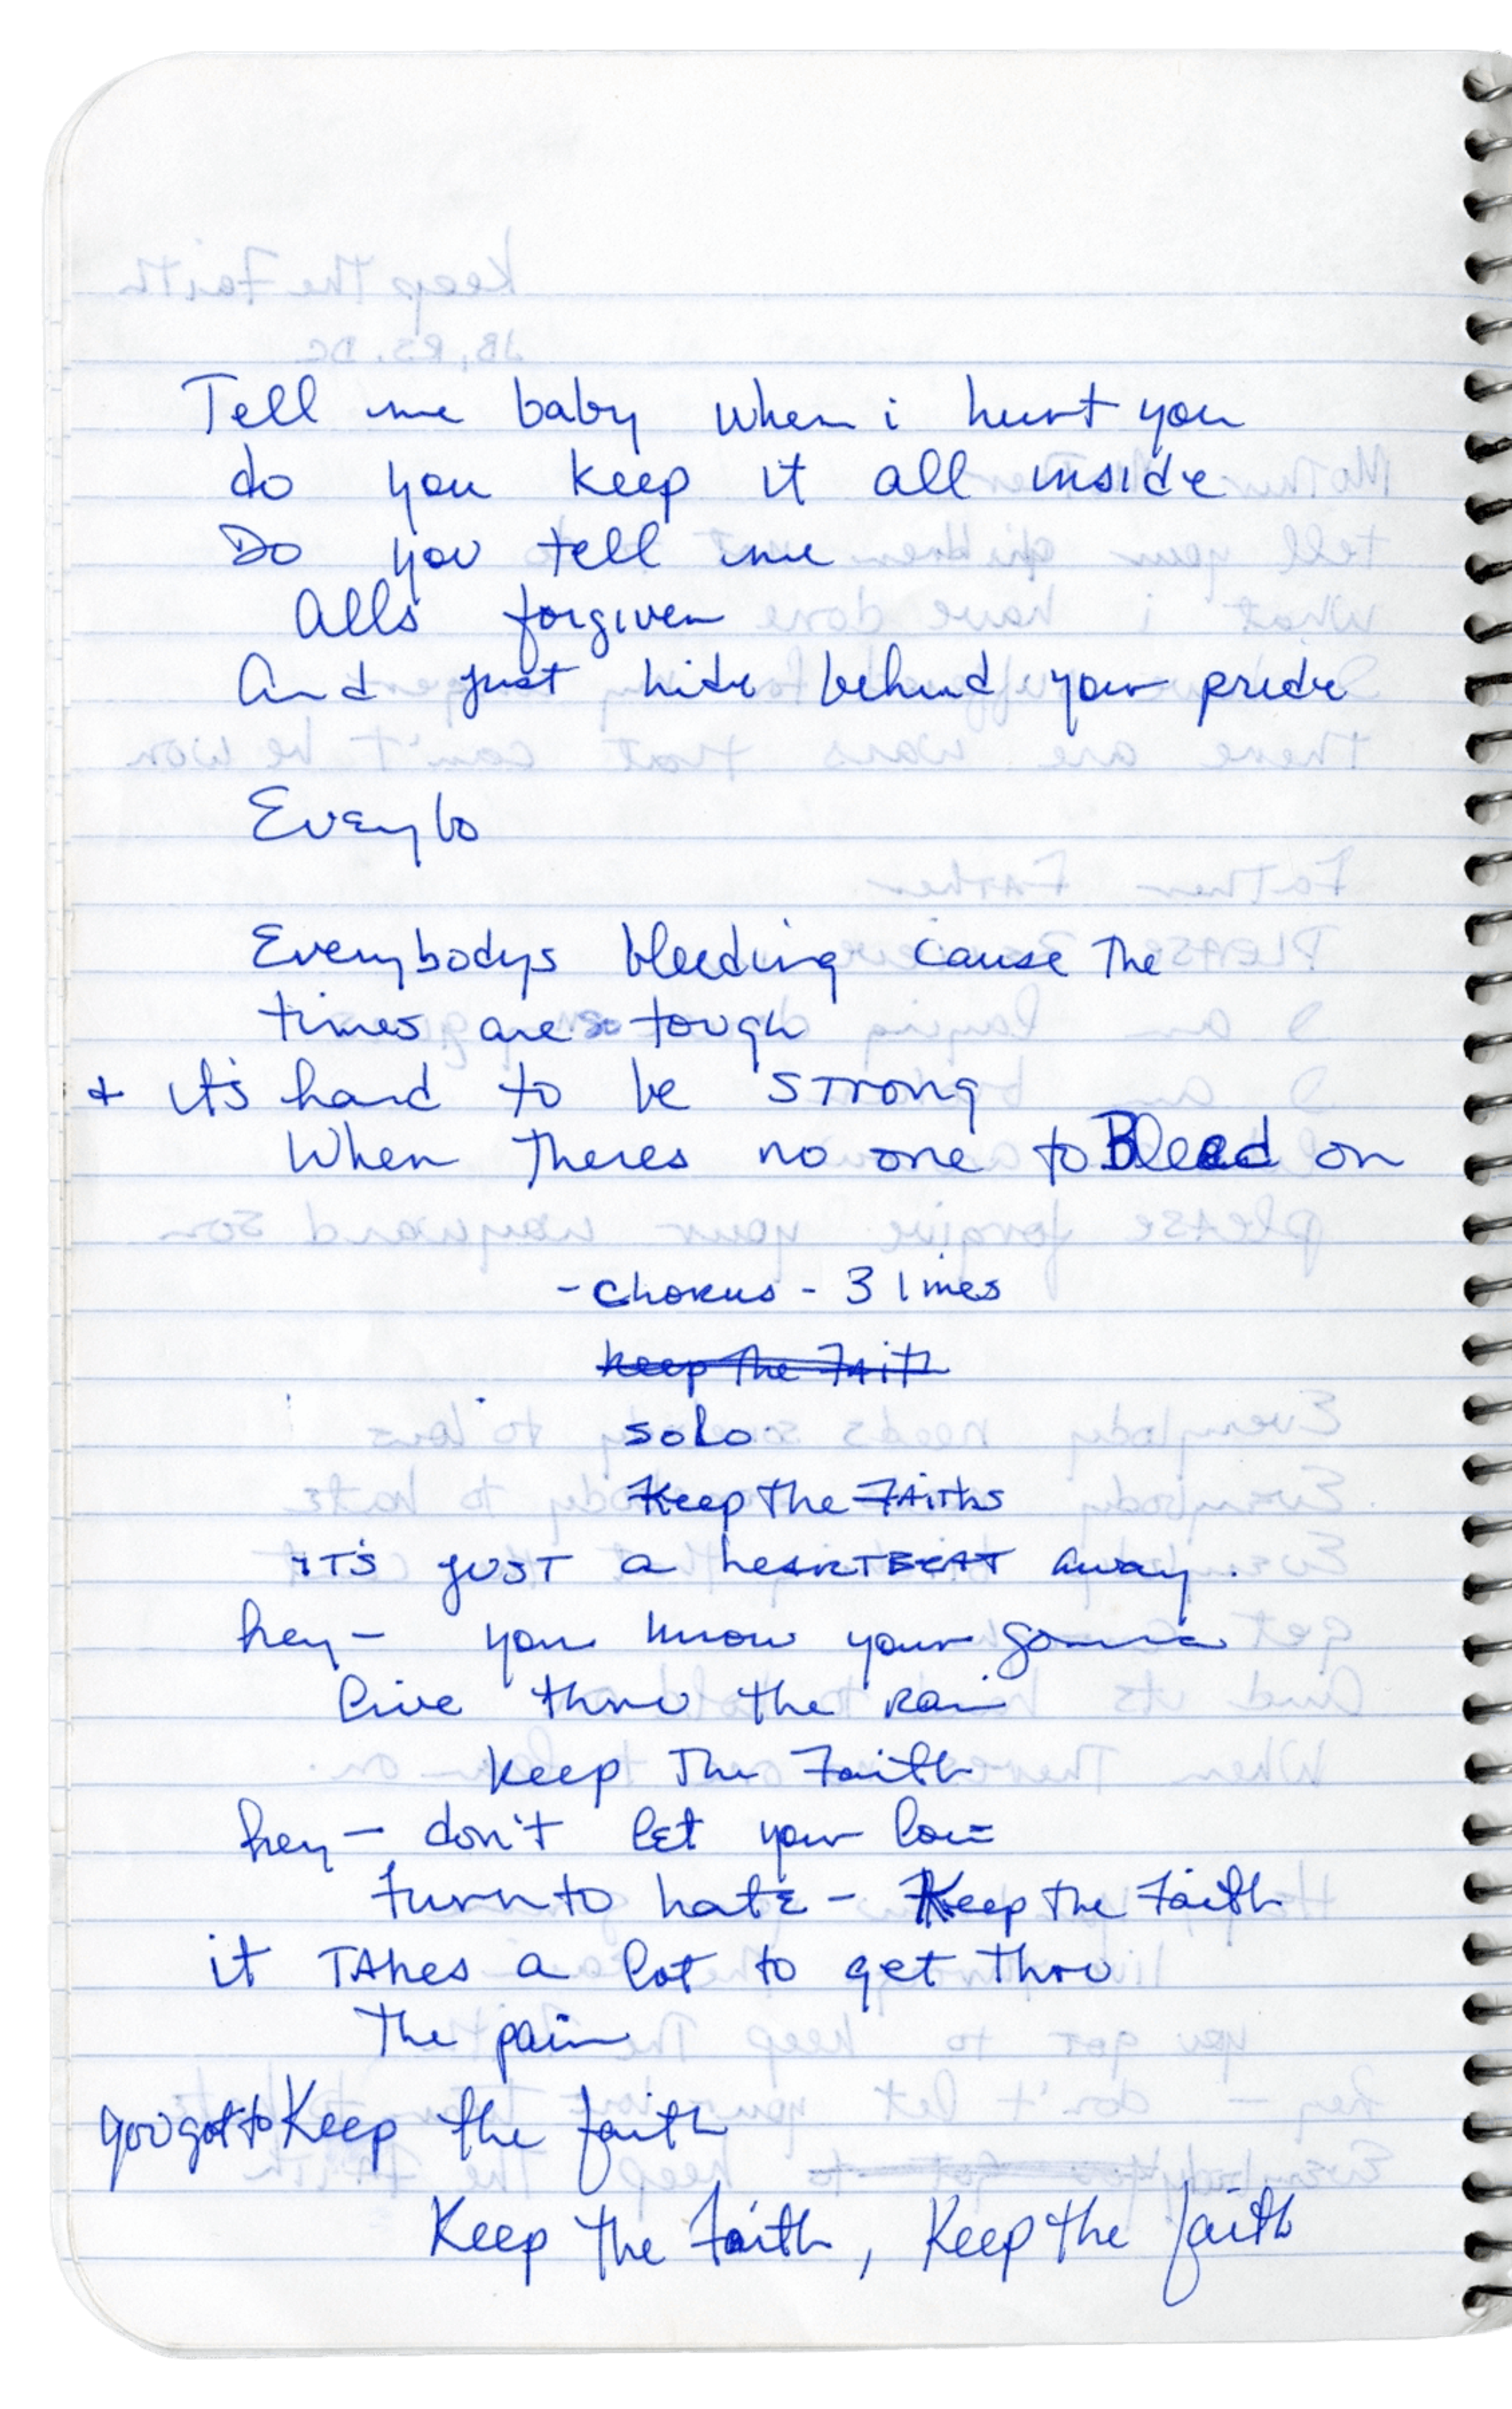 Tell me baby when i hurt you
do you keep it all inside
Do you tell me
Alls forgiven
And just hide behind your pride
Everybo
Everybodys bleeding cause the
times are tough
+ it's hard to be strong
When theres no one to Bleed on
- chorus - 3 lines
keep the Faith
solo
Keep the Faiths
iT'S JUST a heARTBEAT away.
hey - you know your gonna
live thru the Rain
keep The Faith
hey - don't let your love
turn to hate - Keep the Faith
it TAkes a lot to get thru
the pain
you got to Keep the faith
Keep the Faith, Keep the faith